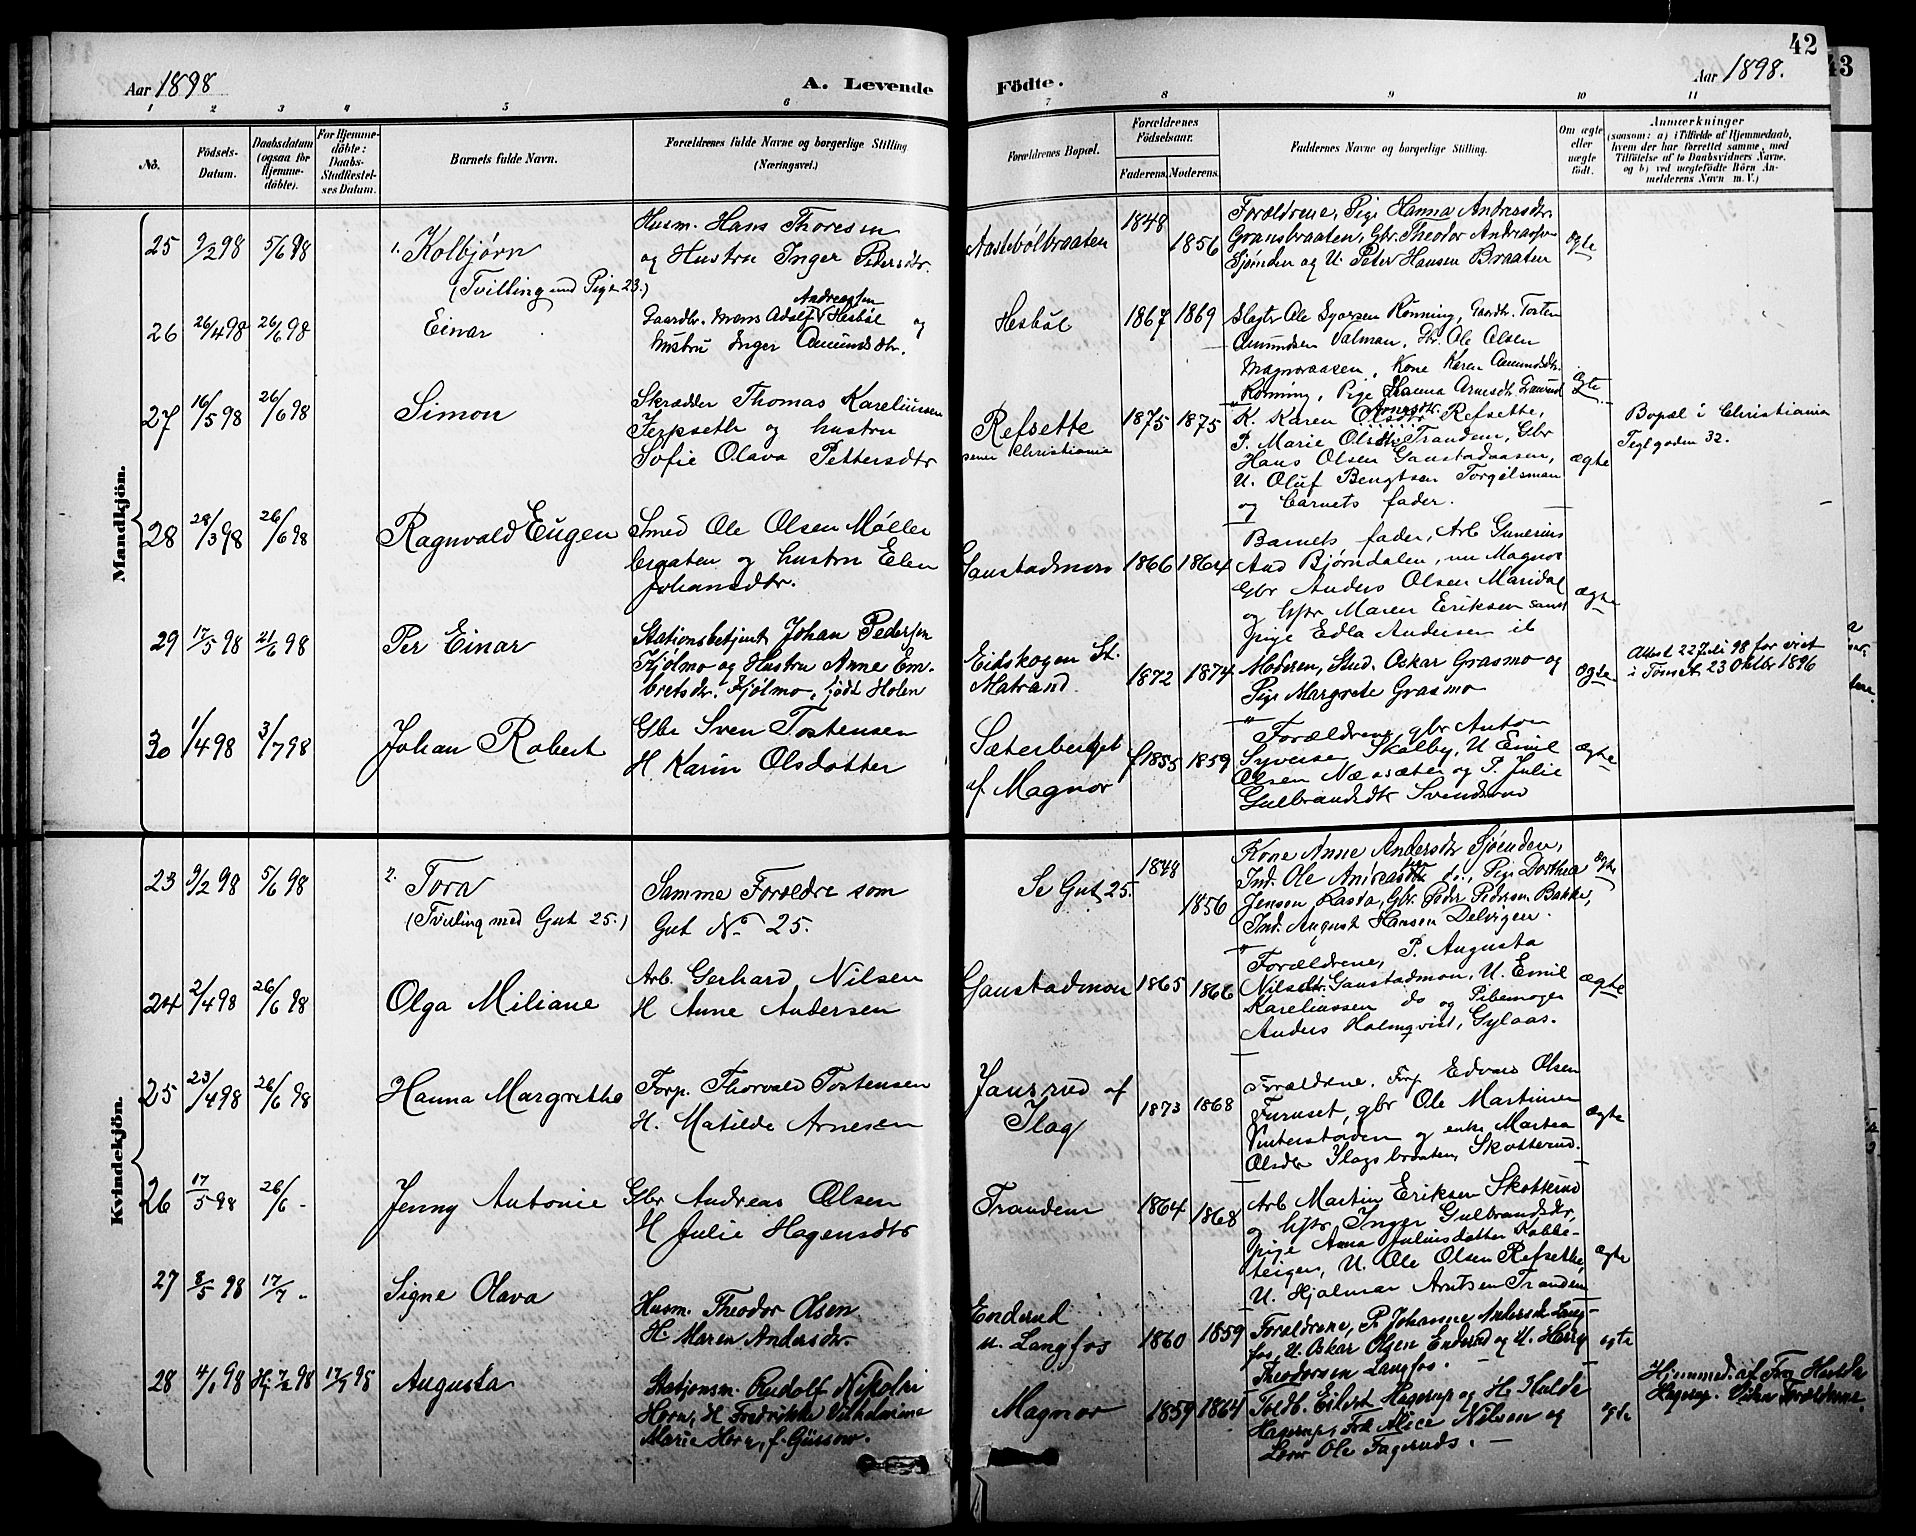 42
43
Aar 1898
A. Levende
Födte.
Aar 1898.
1 2 3 4 5 6 7 8 9 10 11
No.
Födsels-
Datum.
Daabsdatum
(ogsaa for
Hjemme-
döbte).
For Hjemme-
döbte:
Daabs-
Stadfæstel-
ses Datum.
Barnets fulde Navn.
Forældrenes fulde Navne og borgerlige Stilling
(Næringsvei.)
Forældrenes Bopæl.
Forældrenes
Födselsaar.
Faderens. Moderens.
Faddernes Navne og borgerlige Stilling.
Om ægte
eller
uægte
födt.
Anmærkninger
(saasom: a) i Tilfælde af Hjemmedaab,
hvem der har forrettet samme, med
Tilföielse af to Daabsvidners Navne,
og b) ved uægtefödte Börn An-
melderens Navn m. V.)
Mandkjön.
25
9/2 98
5/6 98
1. Kolbjørn
(Tvilling med Pige 23.)
Husm. Hans Thoresen
og Hustru Inger Pedersdtr.
Aastebölbraaten
1848
1856
Forældrene, Pige Hanna Andreasdr.
Gransbraaten, Gbr. Theodor Andreassen
Sjønden og U. Peter Hansen Braaten
ægte
26
26/4 98
26/6 98
Einar
Andreassen
Gaardbr. Mons Adolf Hesböl og
hustru Inger Amundsdtr.
Hesböl
1867 1869
Slagtr Ole Syversen Rönning, Gaardbr. Tosten
Amundsen Valman, Gbr. Ole Olsen
Magnoraasen, Kone Karen Amundsdtr.
Rönning, Pige Hanna Arnesdtr
ægte
27
16/5 98
26/6 98
Simon
Skrædder Thomas Kareliussen
Jerpseth og hustru
Sofie Olava Pettersdtr
Refsette
senere Christiania
1875 1875
Arnesdtr
K. Karen Olsdtr Refsette,
P. Marie Olsdtr Trandem, Gbr
Hans Olsen Gaustadaasen,
U. Oluf Bengtsen Torgilsman
og barnets fader.
ægte
Bopæl i Christiania
Teglgaden 32.
28
28/3 98
26/6 98
Ragnvald Eugen
Smed Ole Olsen Møller
braaten og hustru Elen
Johansdtr.
Gaustadmon
1866 1864
Barnets fader, Arb Gunerius
And Bjørndalen, nu Magnor
Gbr Anders Olsen Maridal
og hstr Maren Eriksen samt
pige Edla Andersen
ægte
29
17/5 98
21/6 98
Per Einar
Stationsbetjent Johan Pedersen
Kjølmo og Hustru Anne Em-
bretsdr. Kjølmo, født Holen
Eidskogen St.
Matrand.
1872 1874
Moderen, Stud. Oskar Grasmo og
Pige Margrete Grasmo
ægte
Attest 22 Juli 98 for viet
i Tönset 23 Oktbr 1896
30
1/4 98
3/7 98
Johan Robert
Gbr Sven Tostensen
H. Karin Olsdotter
Sæterberget
af Magnor
f 1855 1859
Forældrene, gbr Anton
Syversen Skolby, U Emil
Olsen Næssæter og P. Julie
Gulbrandsdtr Svensrud
ægte
Kvindekjön.
23
9/2 98
5/6 98
2. Tora
(Tvilling med Gut 25.)
Samme Forældre som
Gut No 25.
Se Gut 25.
1848
1856
Kone Anne Andersdtr Sjønden,
Ind. Ole Andreassen do., Pige Dorthea
Jensen Rasta, Gbr. Peder Pedersen Bakke,
Ind. August Hansen Delvigen.
ægte
24
2/4 98
26/6 98
Olga Miliane
Arb. Gerhard Nilsen
H Anne Andersen
Gaustadmon
1865 1866
Forældrene, P. Augusta
Nilsdtr. Gaustadmon, U. Emil
Kareliussen do og Pibemager
Anders Holmqvist, Gylaas.
ægte
25
23/4 98
26/6 98
Hanna Margrethe
Forp. Thorvald Tostensen
H. Matilde Arnesen
Jansrud af
Ilag
1873 1868
Forældrene. Forp Edvard Olsen
Furuset, gbr Ole Martinsen
Vinterstøden og enke Martea
Olsdtr Ilagsbraaten, Skotterud.
ægte
26
17/5 98
26/6 -
Jenny Antonie
Gbr Andreas Olsen
H Julie Hagensdtr
Trandem
1864 1868
Arb Martin Eriksen Skotterud
og hstr Inger Gulbrandsdtr,
pige Anna Juliusdatter Kobbe-
teigen, U. Ole Olsen Refsette,
U. Hjalmar Arntsen Trandem
ægte
27
8/5 98
17/7 -
Signe Olava
Husm. Theodor Olsen
H. Maren Andersdr.
Enderud
u. Langfos
1860 1859
Forældrene, P. Johanne Andersdr Lang-
fos, U. Oskar Olsen Enderud og U. Harry
Theodorsen Langfos.
ægte
28
4/1 98
Hj 7/2 98
17/7 98
Augusta
Stationsm. Rudolf Nikolai
Horn, H. Fredrikke Vilhelmine
Marie Horn, f. Güssow.
Magnor
1859 1864
Toldb. Eilert Hagerup og H. Hulda
Hagerup, Frk Alice Nilsen og
Ole Fageruds.
ægte
Hjemmed. af Fru Hulda
Hagerup. Vidner Forældrene.